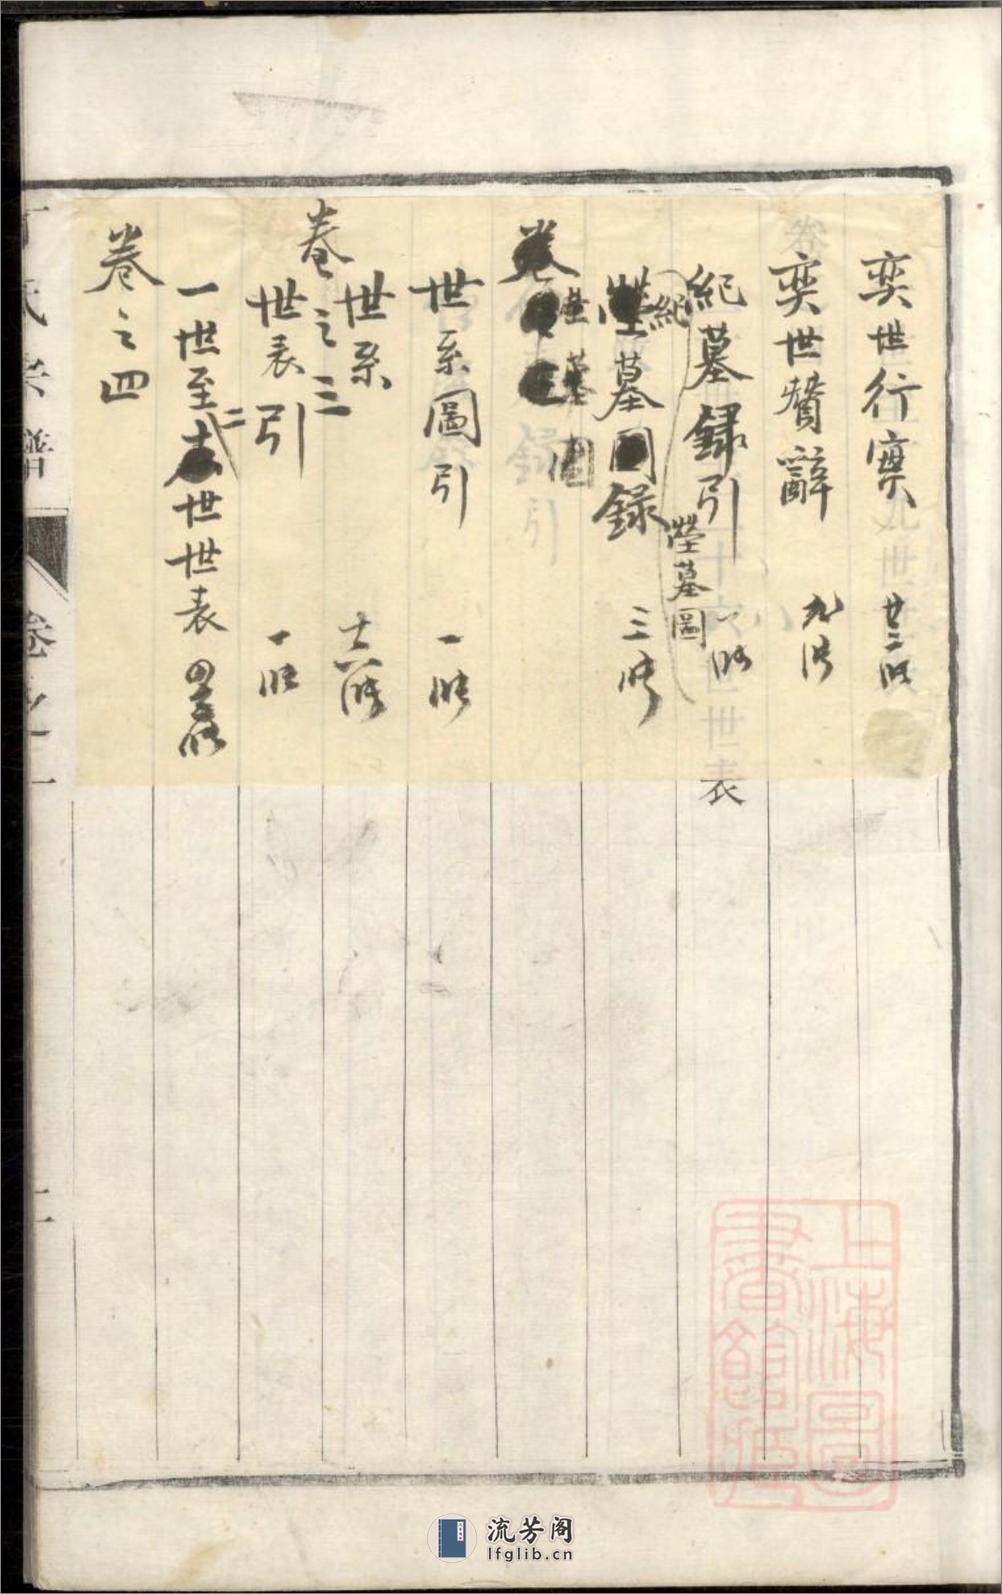 奕世行實 廿二帋
奕世賛辭 九帋
紀墓錄引 一帋
塋墓圖
紀
塋墓錄 三帋
塋墓圖
卷
世系圖引 一帋
世系 十六帋
卷之三
世表引 一帋
一世至十二世世表
卷之四
世表
氏宗譜 卷之一 二
上海圖書館藏
流芳阁
lfglib.cn